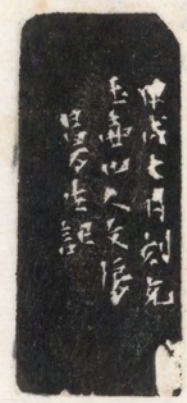 甲戌七月刻充
玉壺山人文房
曼生記